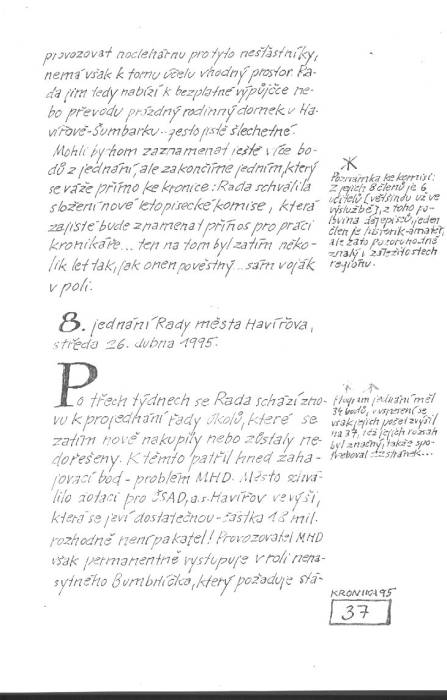 provozovat noclehárnu pro tyto nešťastníky,
nemá však k tomu účelu vhodný prostor. Ra-
da jim tedy nabízí k bezplatné výpůjčce ne-
bo převodu prázdný rodinný domek v Ha-
vířově-Šumbarku - gesto jistě šlechetné.
Mohli bychom zaznamenat ještě více bo-
dů z jednání, ale zakončíme jedním, který
se váže přímo ke kronice: Rada schválila
složení nové letopisecké komise, která
zajisté bude znamenat přínos pro práci
kronikáře... ten na tom byl zatím něko-
lik let tak, jak onen pověstný... sám voják
v poli.
*
Poznámka ke komisi:
Z jejích 8 členů je 6
učitelů (většinou už ve
výslužbě), z toho po-
lovina dějepisců, jeden
člen je historik-amatér,
ale zato pozoruhodně
znalý v záležitostech
regionu.
8. jednání Rady města Havířova,
středa 26. dubna 1995.
Po třech týdnech se Rada schází zno-
vu k projednání řady úkolů, které se
zatím nově nakupily nebo zůstaly ne-
dořešeny. K těmto patřil hned zaha-
jovací bod - problém MHD. Město schvá-
lilo dotaci pro ČSAD, a.s. Havířov ve výši,
která se jeví dostatečnou - částka 18 mil.
rozhodně není pakatel! Provozovatel MHD
však permanentně vystupuje v roli nena-
sytného Bumbrlíčka, který požaduje stá-
* *
Program jednání měl
34 bodů,
však jejich počet zvýšil
na 37, i jejich rozsah
byl značný, takže spo-
třeboval
KRONIKA 95
37